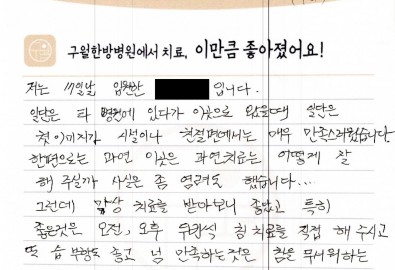 구월한방병원에서 치료, 이만큼 좋아졌어요!
저는 11일날 입원한 입니다.
일단은 타 병원에 있다가 이곳으로 왔을때 일단은
첫이미지가 시설이나 친절면에서는 매우 만족스러웠습니다
한편으로는 과연 이곳은 과연치료는 어떻게 잘
해 주실까 사실은 좀 염려도 했습니다...
그런데 막상 치료를 받아보니 좋았고 특히
좋은것은 오전, 오후 침치료를 직접 해 주시고
또 습부항도 좋고 넘 만족하는것은 침을 무서워하는